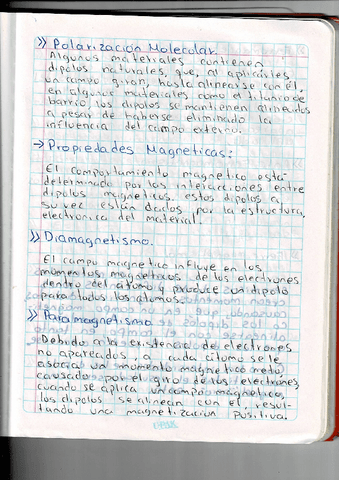 >> Polarización Molecular
Algunos materiales contienen
dipolos naturales, que, al aplicarles
un campo giran, hasta alinearse con él,
en algunos materiales como el titanato de
bario, los dipolos se mantienen alineados
a pesar de haberse eliminado la
influencia del campo externo.
→ Propiedades Magneticas:
El comportamiento magnetico está
determinado por las interacciones entre
dipolos magneticos, estos dipolos a
su vez están dados por la estructura
electronica del material.
>> Diamagnetismo.
El campo magnetico influye en los
momentos magneticos de los electrones
dentro del átomo y produce un dipolo
para todos los atomos.
>> Paramagnetismo
Debido a la existencia de electrones
no apareados, a cada átomo se le
asocia un momento magnetico neto,
causado por el giro de los electrones,
cuando se aplica un campo magnetico,
los dipolos se alinean con el, resul-
tando una magnetizacion positiva.